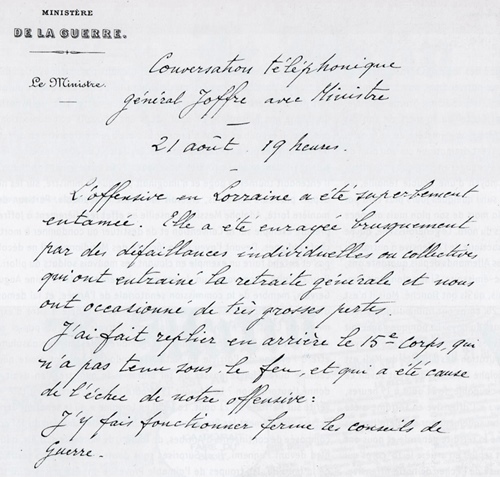 MINISTÈRE
DE LA GUERRE.
Le Ministre.
Conversation téléphonique
général Joffre avec Ministre
21 août. 19 heures.
L'offensive en Lorraine a été superbement
entamée. Elle a été enrayée brusquement
par des défaillances individuelles ou collectives
qui ont entrainé la retraite générale et nous
ont occasionné de très grosses pertes.
J'ai fait replier en arrière le 15e corps, qui
n'a pas tenu sous le feu, et qui a été cause
de l'échec de notre offensive :
J'y fais fonctionner ferme les conseils de
Guerre.